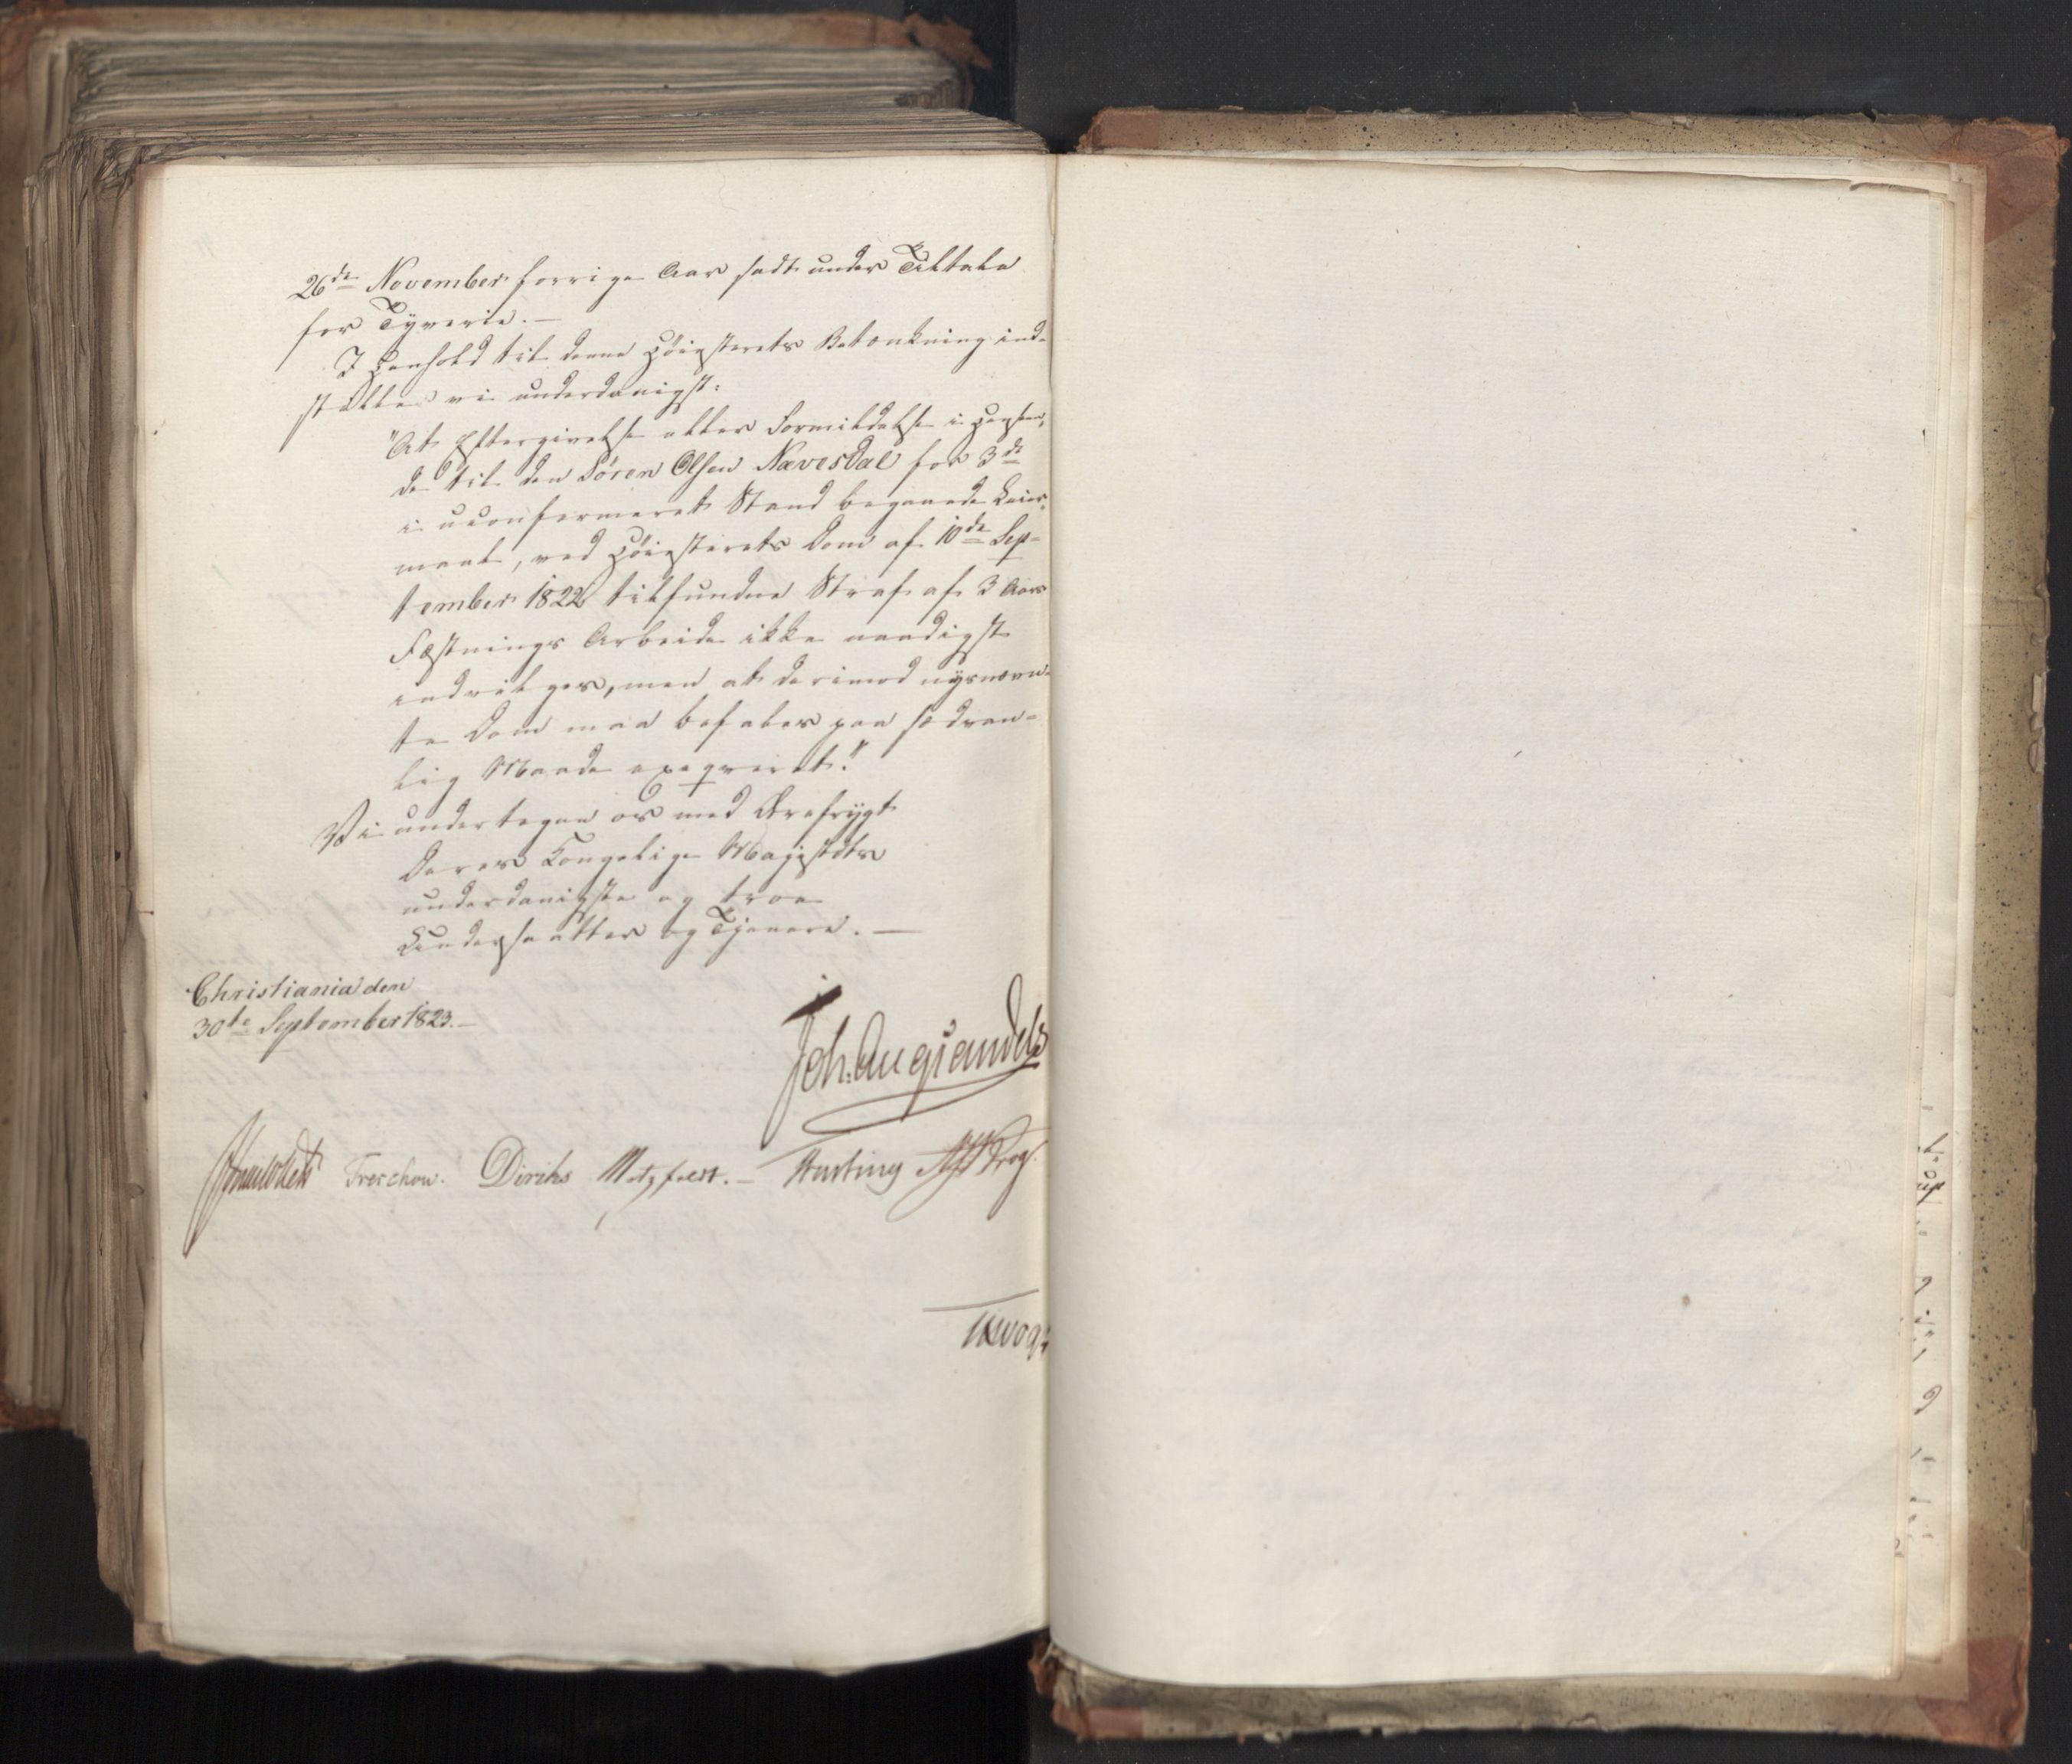 26de November forrige Aar sadt under Tiltale
for Tyverie. —
I Henhold til denne Höiesterets Betænkning ind-
stille vi underdanigst:
"At Eftergivelse eller Formildelse i Hensee-
de til den Sören Olsen Nævesdal for 3de
i uconfermeret Stand begaaede Leier-
maal, ved Höiesterets Dom af 10de Sep-
tember 1822 tilfundne Straf af 3 Aars
Fæstnings Arbeide ikke naadigst
indvilges, men at derimod nysnævn-
te Dom maa befales paa sædvan-
lig Maade exeqveret."
Vi undertegne os med Ærefrygt
Deres Kongelige Majestæts
underdanigste og troe
Undersaatter og Tjenere. —
Christiania den
30te September 1823. —
Joh. Aug Sandels
Treschow. Diriks Motzfeldt. — Krog